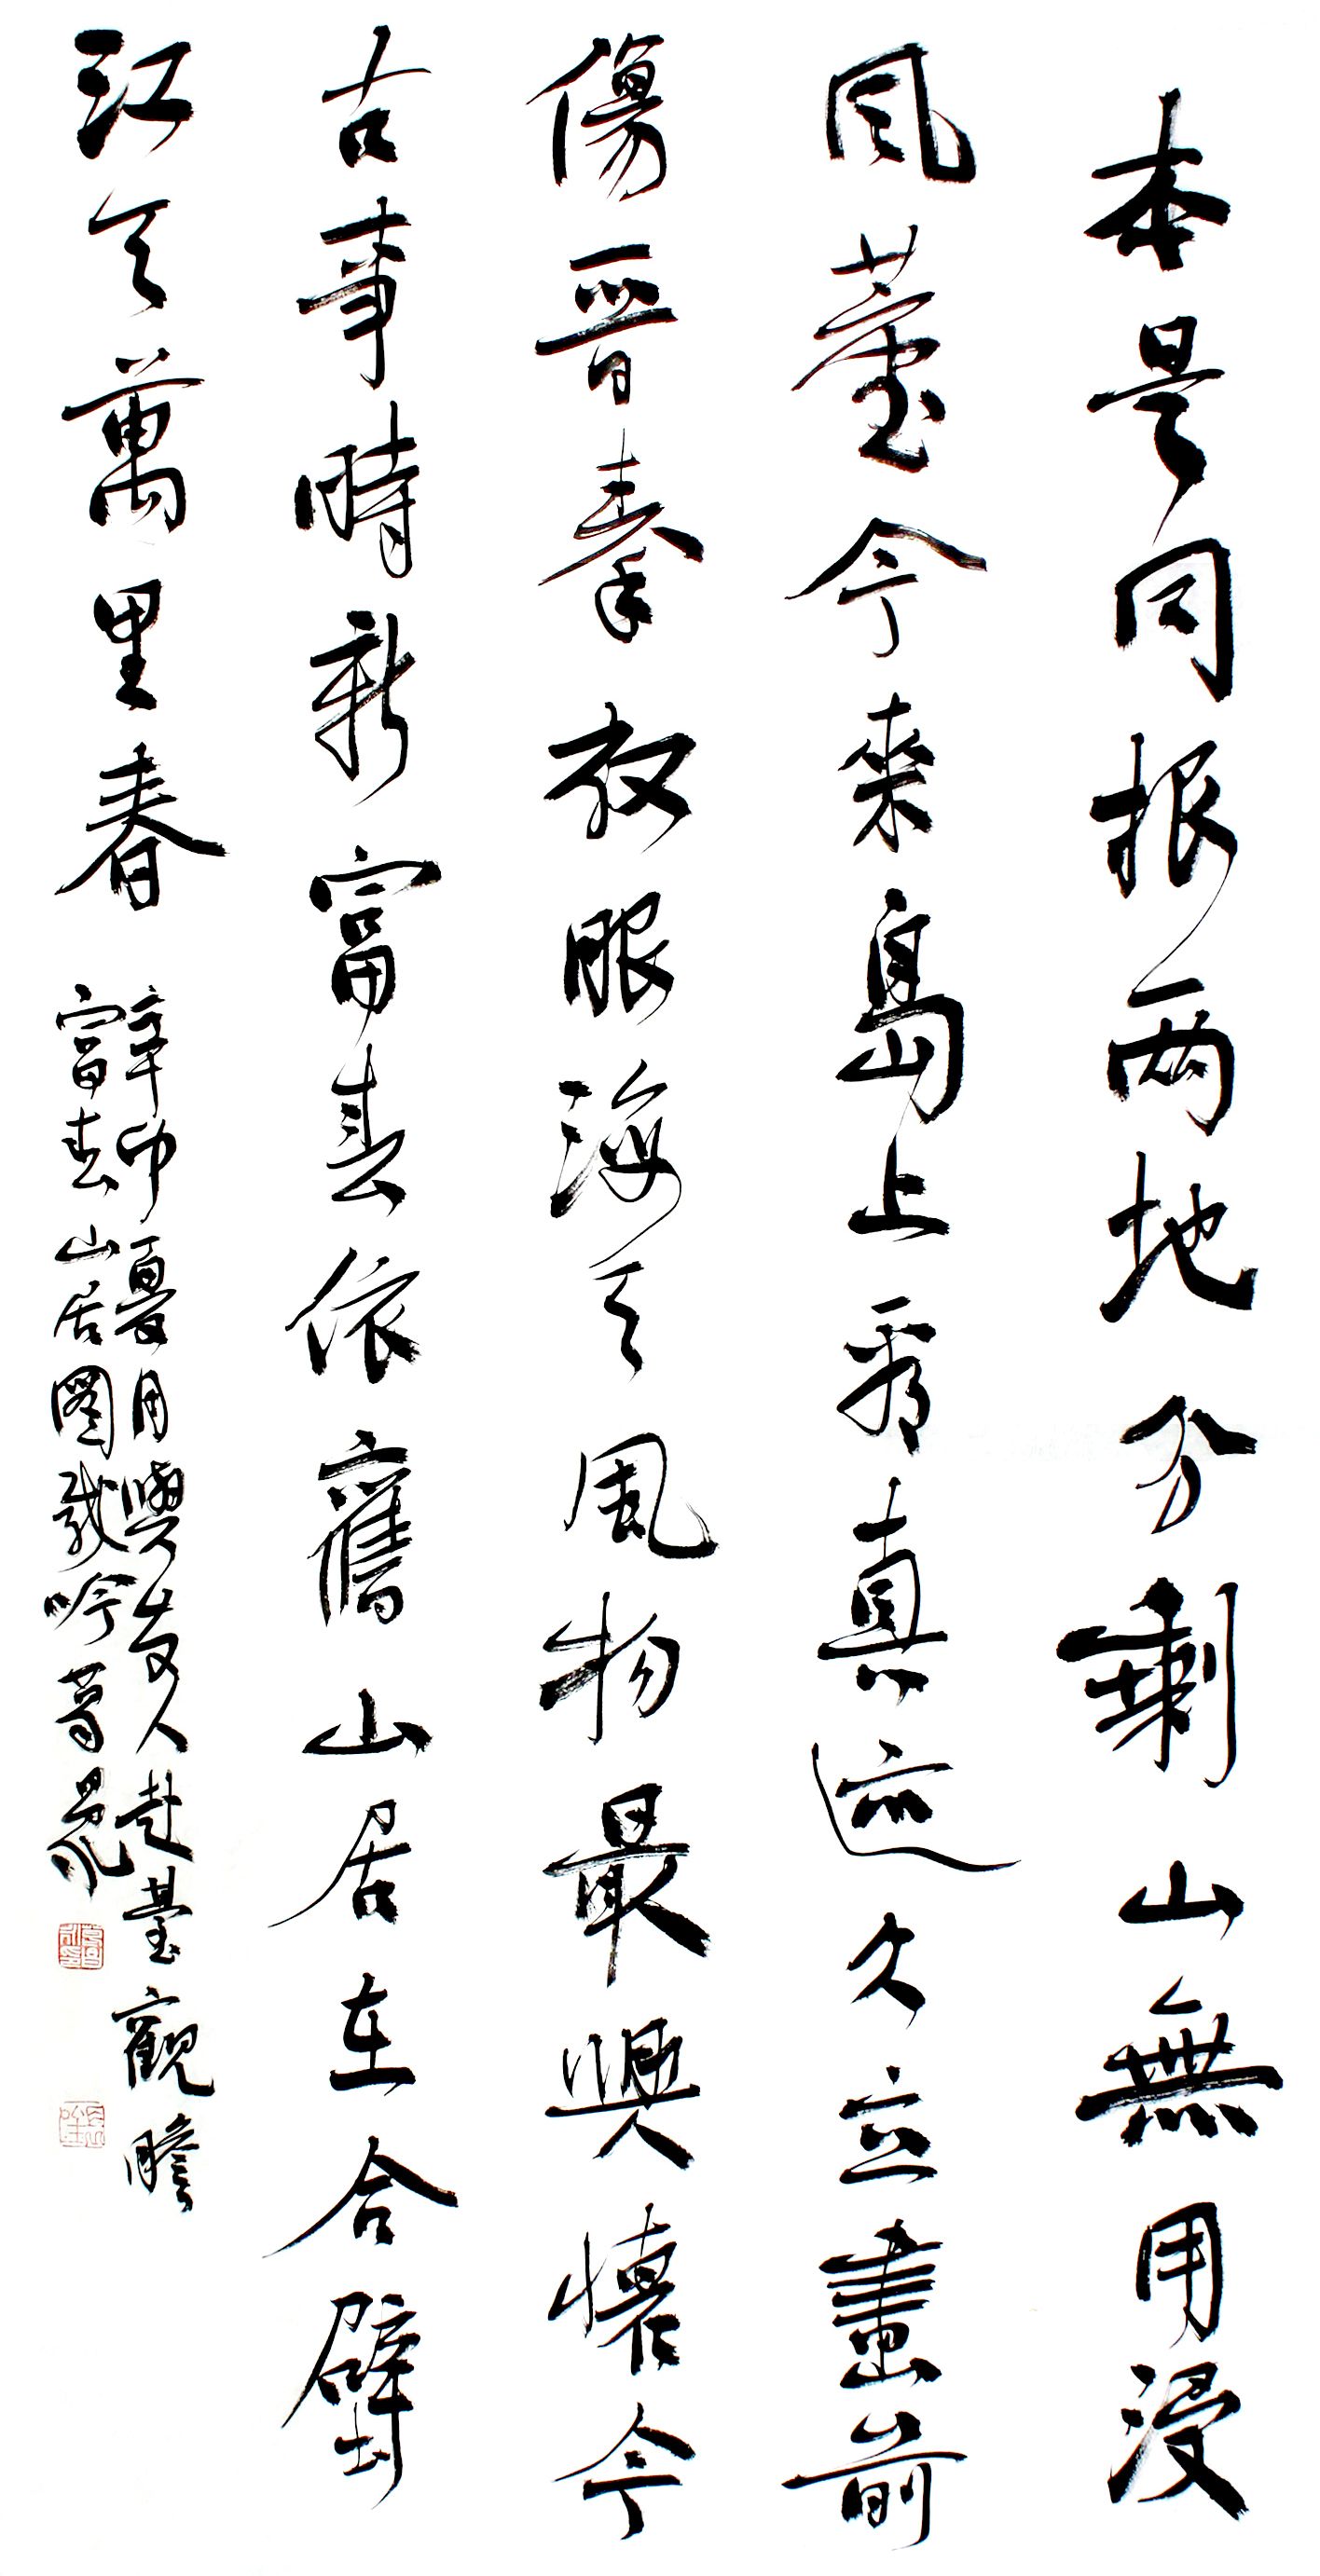 本是同根兩地分剩山無用浸
風塵今来島上看真迹久立畫前
傷晉秦放眼海天風物最興懷今
古事時新富春依舊山居在合璧
江天萬里春
辛卯夏月與友人赴臺觀瞻
富春山居圖感吟